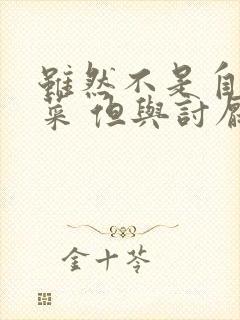 雖然不是自
菜 但與討厭
金十苓